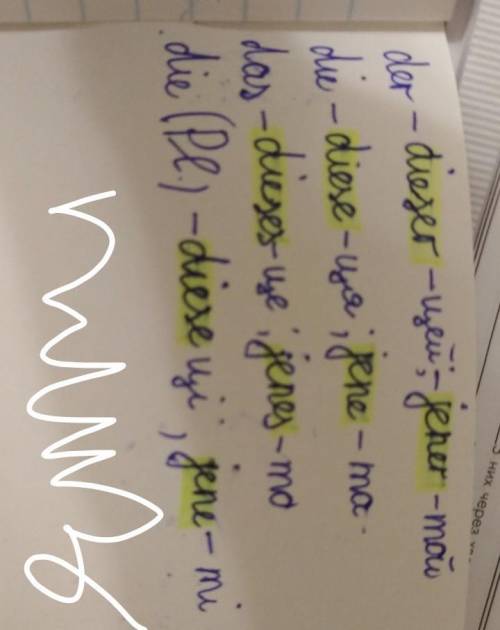 der - dieser - цей; - jener - той
die - diese - ця; jene - та.
das - dieses - це; jenes - то
die (Pl.) - diese ці, jene - ті
них через